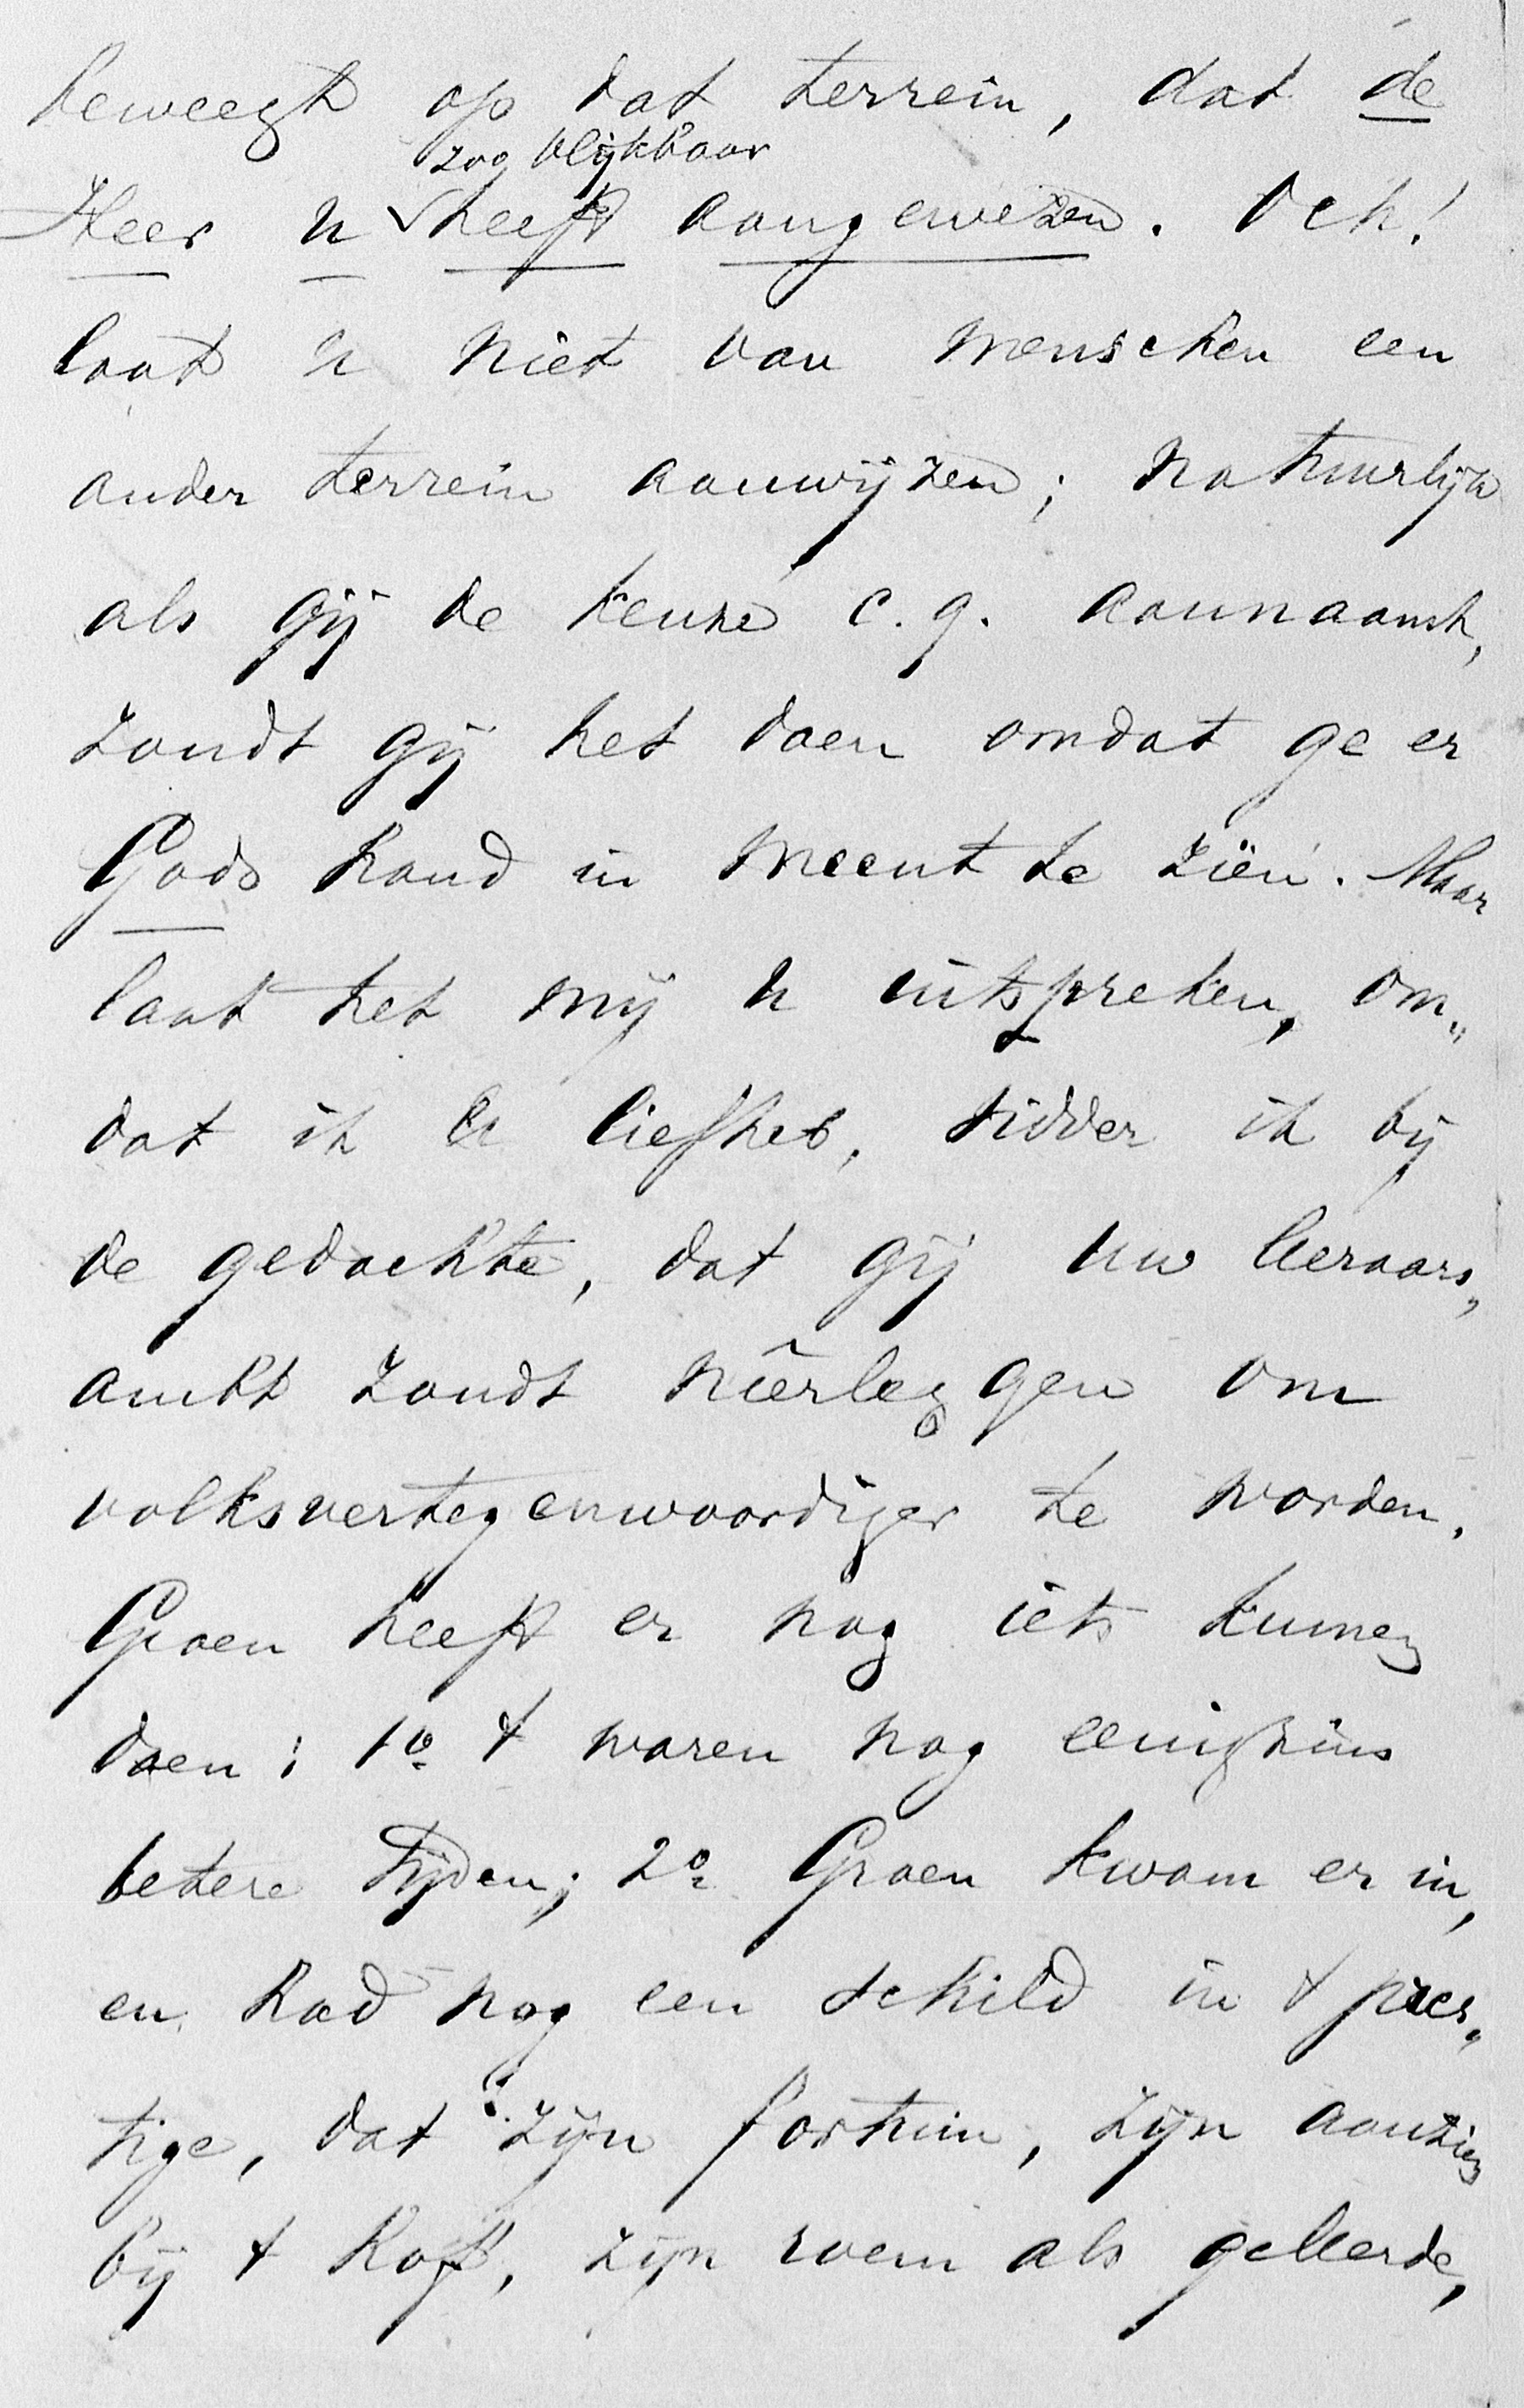 beweegt op dat terrein, dat de
zoo blijkbaar
Heer u heeft aangewezen. Och!
laat u niet van menschen een
ander terrein aanwijzen; natuurlijk
als gij de keuze c.q. aannaamt,
zoudt gij het doen omdat ge er
Gods hand in meent te zien. Maar
laat het mij u uitspreken, om„
dat ik u liefheb, sidder ik bij
de gedachte, dat gij uw leeraars„
ambt zoudt nêerleggen om
volksvertegenwoordiger te worden.
Groen heeft er nog iets kunnen
doen: 1o t waren nog eenigzins
betere tijden; 2o Groen kwam er in,
en had nog een schild in t pres„
tige, dat zijn fortuin, zijn aanzien
bij t hof, zijn roem als geleerde,